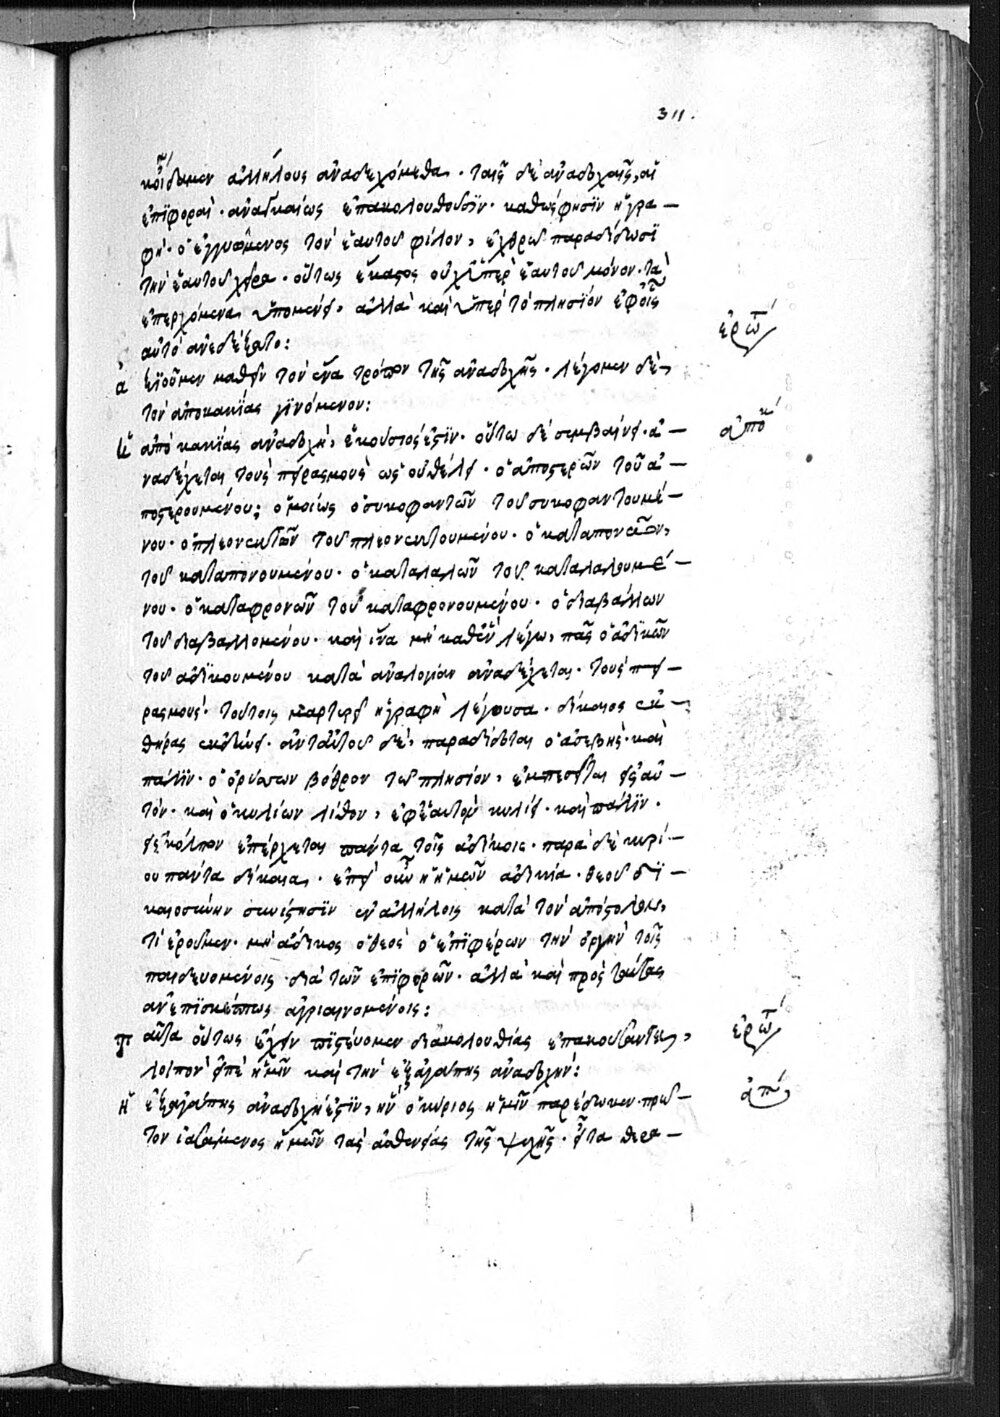 311.
κοίδαμεν ἀλλήλους ἀναδεχόμεθα. ταῖς δὲ ἀναδοχαῖς, αἱ
ἐπϊφοραὶ. ἀναγκαίως ἐπακολουθοῦσϊν. καθώς φησϊν ἡ γρα-
φή. ὁ ἐγγυώμενος τὸν ἑαυτοῦ φίλον, ἐχθρῷ παραδίδωσϊ
τὴν ἑαυτοῦ χεῖρα. οὕτως ἕκαστος οὐχ ὑπὲρ ἑαυτοῦ μόνον τὰ
ἐπερχόμενα ὑπομένει, ἀλλὰ καὶ ὑπὲρ τὸ πλησϊον ἐφ οἷς
αὐτὸ ἀνεδέξατο:
ἐρωτ
ἃ εἴποῦμεν μαθεῖν τὸν ἕνα τρόπον τῆς ἀναδοχῆς. λέγομεν δὲ,
τὸν ἀπὸ κακϊας γϊνόμενον:
ἀπὸ κακϊας ἀναδοχὴ, ἑκούσιός ἐστϊν. οὕτω δὲ συμβαίνει. ἀ-
ἀπο
ναδέχεται τοὺς πειρασμοὺς ὡς οὐ θέλει. ὁ ἀποστερῶν τοῦ ἀ-
ποστερουμένου; ὁμοίως ὁ συκοφαντῶν τοῦ συκοφαντουμέ-
νου. ὁ πλεονεκτῶν τοῦ πλεονεκτουμένου. ὁ καταπονῶν,
τοῦ καταπονουμένου. ὁ καταλαλῶν τοῦ καταλαλουμέ-
νου. ὁ καταφρονῶν τοῦ καταφρονουμένου. ὁ διαβάλλων
τοῦ διαβαλλομένου. καὶ ἵνα μὴ καθὲν λέγω, πᾶς ὁ ἀδϊκῶν
τοῦ ἀδϊκουμένου κατὰ ἀναλογίαν ἀναδέχεται. τοὺς πει-
ρασμούς. τούτοις μαρτυρεῖ ἡ γραφὴ λέγουσα. δίκαιος ἐκ
θήρας ἐκδύνει. ἀντ αὐτοῦ δὲ, παραδίδοται ὁ ἀσεβής. καὶ
πάλϊν. ὁ ὀρύσσων βόθρον τῷ πλησίον, ἐμπεσεῖται εἰς αὐ-
τόν. καὶ ὁ κυλίων λίθον, ἐφ ἑαυτὸν κυλίει. καὶ πάλϊν.
εἰς κόλπον ἐπέρχεται πάντα τοῖς ἀδίκοις. παρὰ δὲ κυρί-
ου πάντα δίκαια. ἐπεὶ οὖν ἡ ἡμῶν ἀδικία. θεοῦ δϊ-
καιοσύνην συνίστησϊν ἐν ἀλλήλοις κατὰ τὸν ἀπόστολον,
τί ἐροῦμεν. μὴ ἄδικος ὁ θεὸς ὁ ἐπϊφέρων τὴν ὀργὴν τοῖς
παιδευομένοις διὰ τῶν ἐπϊφορῶν. ἀλλὰ καὶ πρὸς ταύτας
ἀνεπϊσκέπτως ἀγριαινομένοις:
ἐρωτ
ταῦτα οὕτως ἔχειν πϊστεύομεν δι ἀκολουθίας ἐπακούσαντες,
λοϊπὸν εἰπὲ ἡμῖν καὶ τὴν ἐξ ἀγάπης ἀναδοχήν:
Ἡ ἐξ ἀγάπης ἀναδοχή ἐστϊν, ἣν ὁ κύριος ἡμῖν παρέδωκεν. πρῶ-
ἀπο
τον ἰασάμενος ἡμῶν τὰς ἀσθενείας τῆς ψυχῆς. εἶτα θερα-